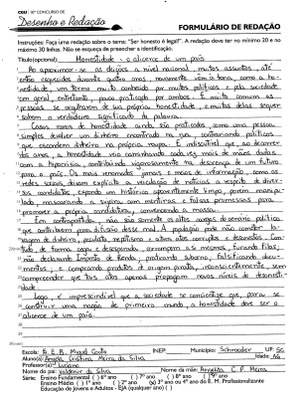 CGU 10º CONCURSO DE
Desenho e Redação
FORMULÁRIO DE REDAÇÃO
Instruções: Faça uma redação sobre o tema: "Ser honesto é legal!". A redação deve ter no mínimo 20 e no
máximo 30 linhas. Não se esqueça de preencher a identificação.
Título (opcional): Honestidade - o alicerce de um país
Ao aproximar-se as eleições a nível nacional muitos assuntos, até
então esquecidos durante quatro anos, novamente vem à tona, como a ho-
nestidade, um termo muito conhecido por muitos políticos e pela sociedade
em geral, entretanto, pouco praticado por ambos. É muito comum as
pessoas se orgulharem de sua própria honestidade, e muitas delas sequer
sabem o verdadeiro significado da palavra.
Casos raros de honestidade ainda são praticados, como uma pessoa
simples devolver um dinheiro encontrado na rua, contrariando políticos
que escondem dinheiro na própria roupa. É indiscutível que, ao decorrer
dos anos, a honestidade vem caminhando cada vez mais de mãos dadas
com a hipocrisia, contribuindo vigorosamente na descrença de um futuro
para o país. Os mais renomados jornais e meios de informação, como as
redes sociais, divam explícita a veiculação de notícias a respeito de diver-
sos candidatos, expondo um histórico aparentemente limpo, porém manipu-
lado, mascarando a sujeira com mentiras e falsas promessas para
promover a própria candidatura, convencendo a massa.
Em contrapartida, não são somente os altos cargos do cenário político
que contribuem para difusão desse mal. A população pode não cometer la-
vagem de dinheiro, peculato, nepotismo e outros atos corruptos e desonestos. Con-
tudo, de forma cega e desesperada, corrompem a si mesmos, furando filas,
não declarando Imposto de Renda, praticando suborno, falsificando docu-
mentos, e comprando produtos de origem pirata, inconscientemente, sem
compreender que tais atos apenas propagam novos níveis de desonesti-
dade.
Logo, é imprescindível que a sociedade se conscientize que, para se
construir uma nação de primeiro mundo, a honestidade deve ser o
alicerce de um país.
Escola: E.E.B. Miguel Couto INEP: Município: Schroeder UF: SC
Aluno(a): Angela Cristina Meira da Silva Idade:
Professor(a): Luciano
Nome do pai: Valdenir da Silva Nome da mãe: C. P. Meira
Série: Ensino Fundamental ( ) 6º ano ( ) 7º ano ( ) 8º ano ( ) 9º ano
Ensino Médio ( ) 1º ano ( ) 2º ano (x) 3º ano ou 4º ano do E. M. Profissionalizante
Educação de Jovens e Adultos - EJA (qualquer ano) ( )